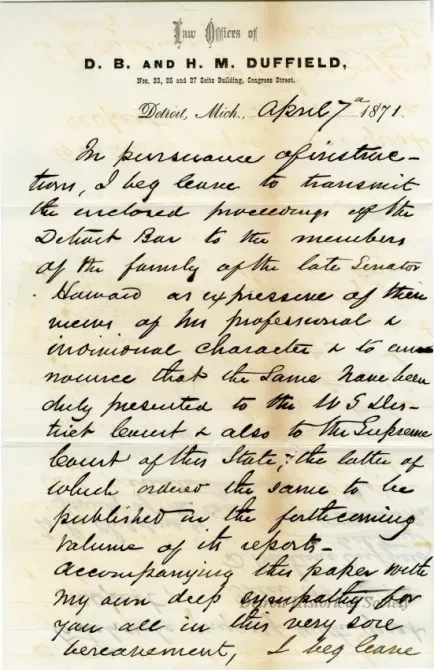 Law Offices of
D. B. AND H. M. DUFFIELD,
Nos. 23, 25 and 27 Seitz Building, Congress Street.
Detroit, Mich., April 7th 1871.
In pursuance of instruc-
tions, I beg leave to transmit
the enclosed proceedings of the
Detroit Bar to the members
of the family of the late Senator
Howard as expressive of their
views of his professional &
individual character & to an-
nounce that the same have been
duly presented to the U S Dis-
trict Court & also to the Supreme
Court of this State, the latter of
which ordered the same to be
published in the forthcoming
volume of its reports-
Accompanying this paper with
my own deep sympathy for
you all in this very sore
bereavement, I beg leave
Detroit Historical Society